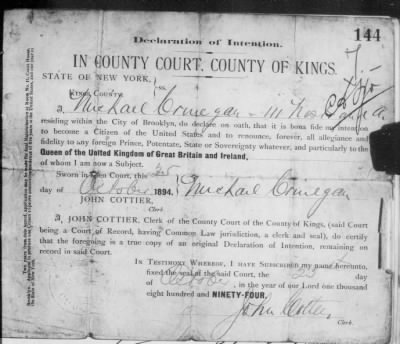 144
Declaration of Intention.
IN COUNTY COURT, COUNTY OF KINGS.
STATE OF NEW YORK, } ss.
KINGS COUNTY.
I, Michael Cornegan 111
residing within the City of Brooklyn, do declare on oath, that it is bona fide my intention
to become a Citizen of the United States and to renounce, forever, all allegiance and
fidelity to any foreign Prince, Potentate, State or Sovereignty whatever, and particularly to the
Queen of the United Kingdom of Great Britain and Ireland,
of whom I am now a Subject.
Sworn in Open Court, this 25
day of October 1894. Michael Cornegan
JOHN COTTIER,
Clerk
I, JOHN COTTIER, Clerk of the County Court of the County of Kings, (said Court
being a Court of Record, having Common law jurisdiction, a clerk and seal), do certify
that the foregoing is a true copy of an original Declaration of Intention, remaining on
record in said Court.
IN TESTIMONY WHEREOF, I HAVE SUBSCRIBED my name hereunto,
fixed the seal of said Court, the 25 day
of October in the year of our Lord one thousand
eight hundred and NINETY-FOUR.
John Cottier
Clerk.